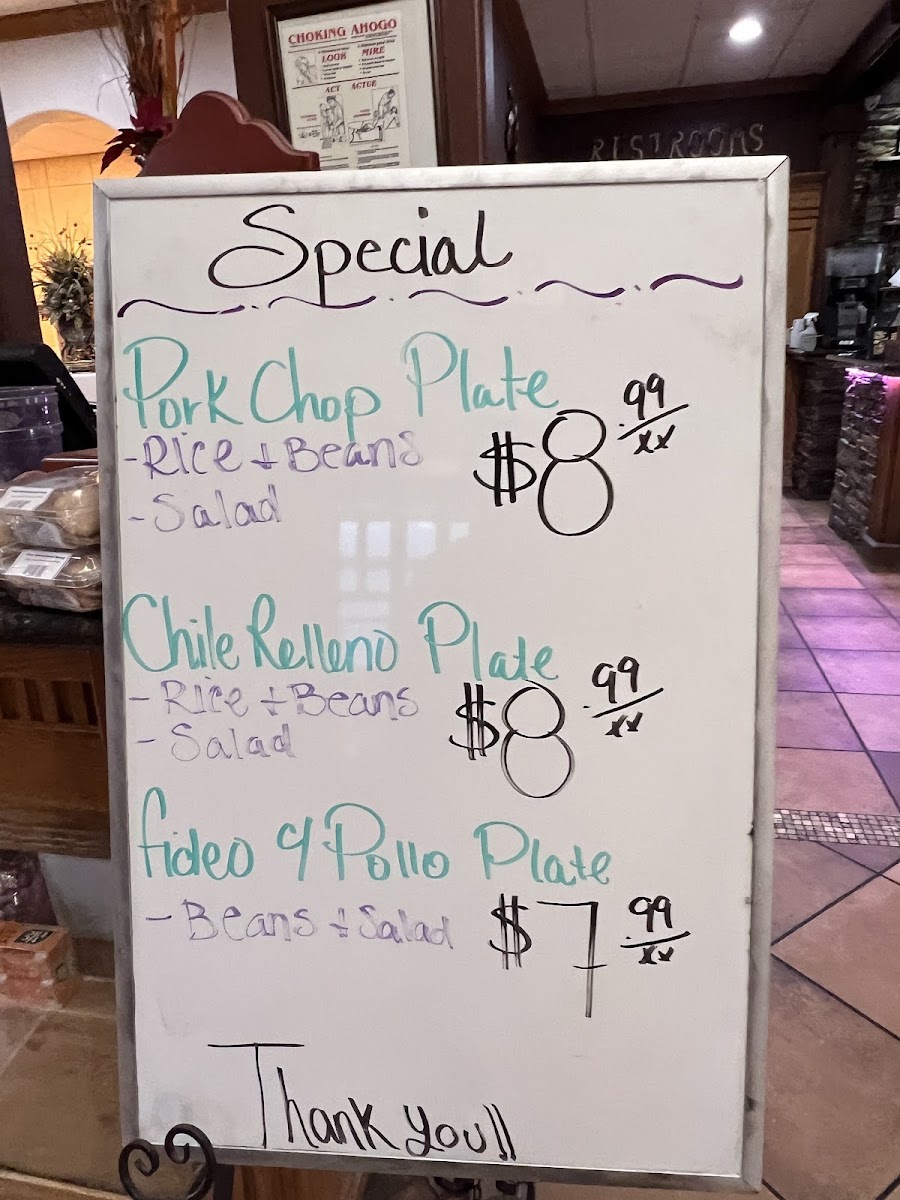 CHOKING AHOGO
LOOK MIRE
ACT ACTUE
RESTROOMS
Special
Pork Chop Plate
- Rice + Beans
- Salad
$8.99/xx
Chile Relleno Plate
- Rice + Beans
- Salad
$8.99/xx
fideo y Pollo Plate
- Beans + Salad
$7.99/xx
Thank you!!